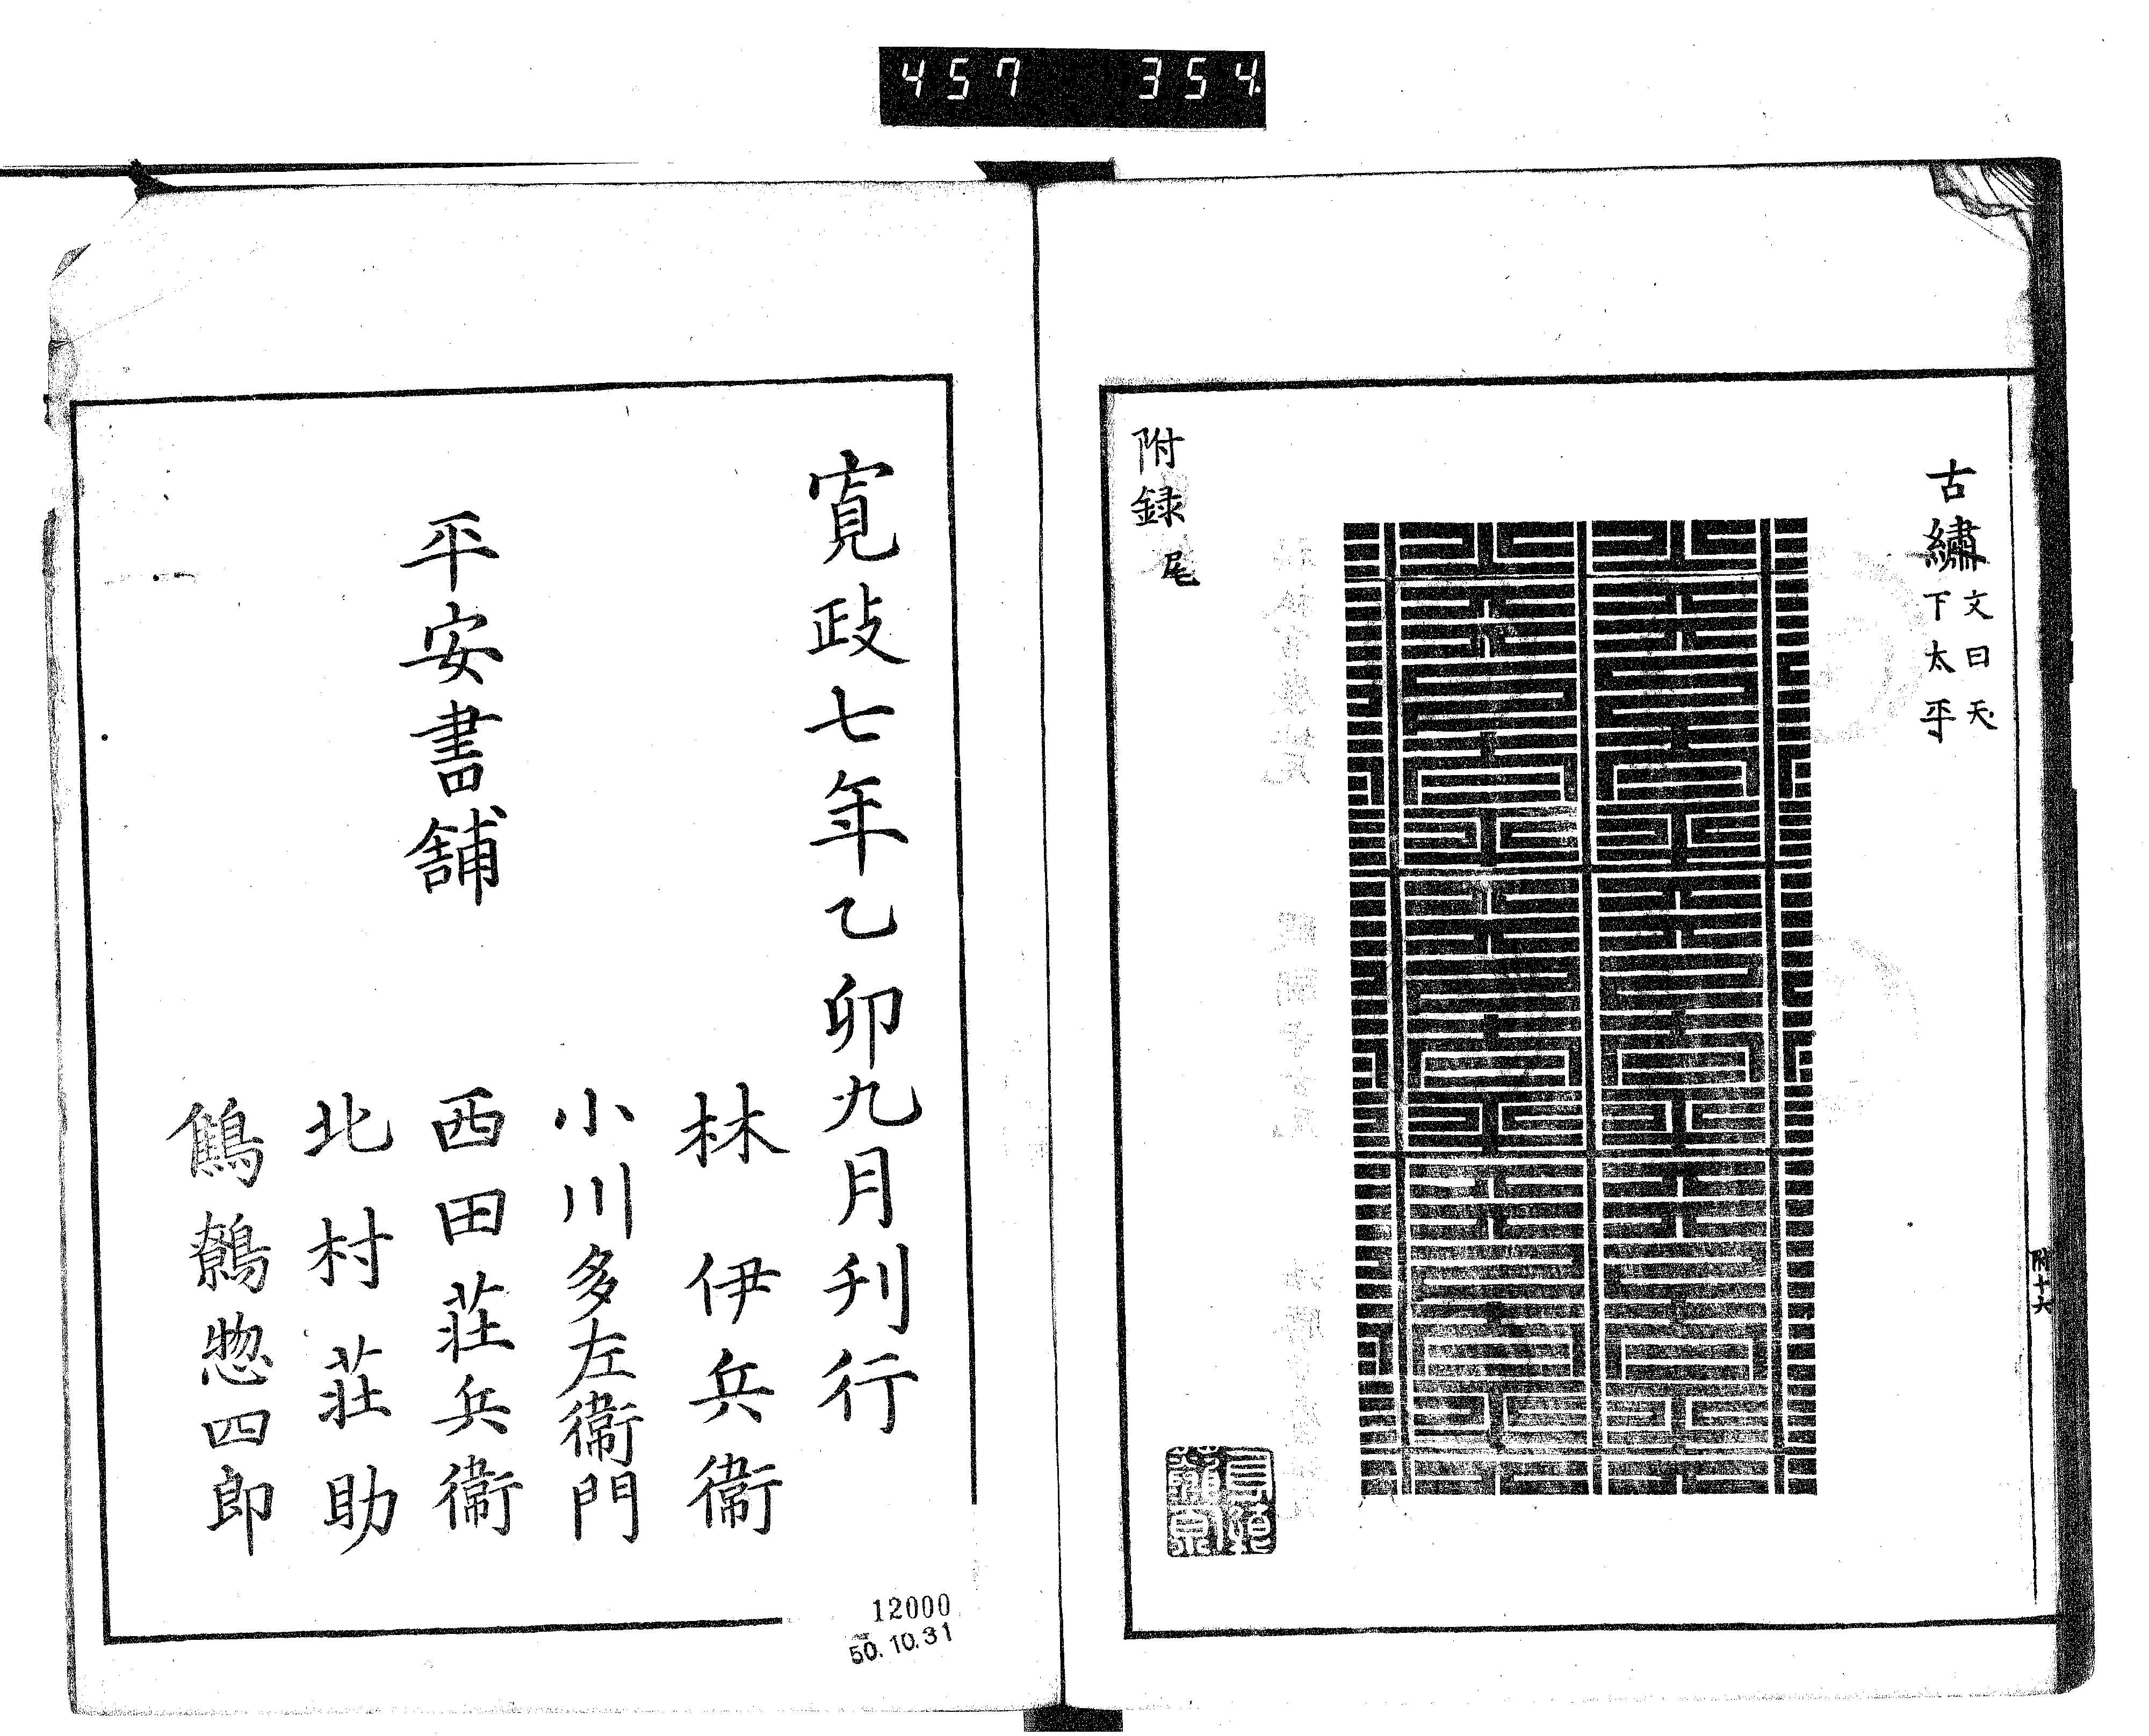 457 354
古繡文曰天
下太平
附録尾
附十六
寛政七年乙卯九月刊行
平安書舗
林伊兵衞
小川多左衞門
西田荘兵衞
北村荘助
鷦鷯惣四郎
12000
50.10.31